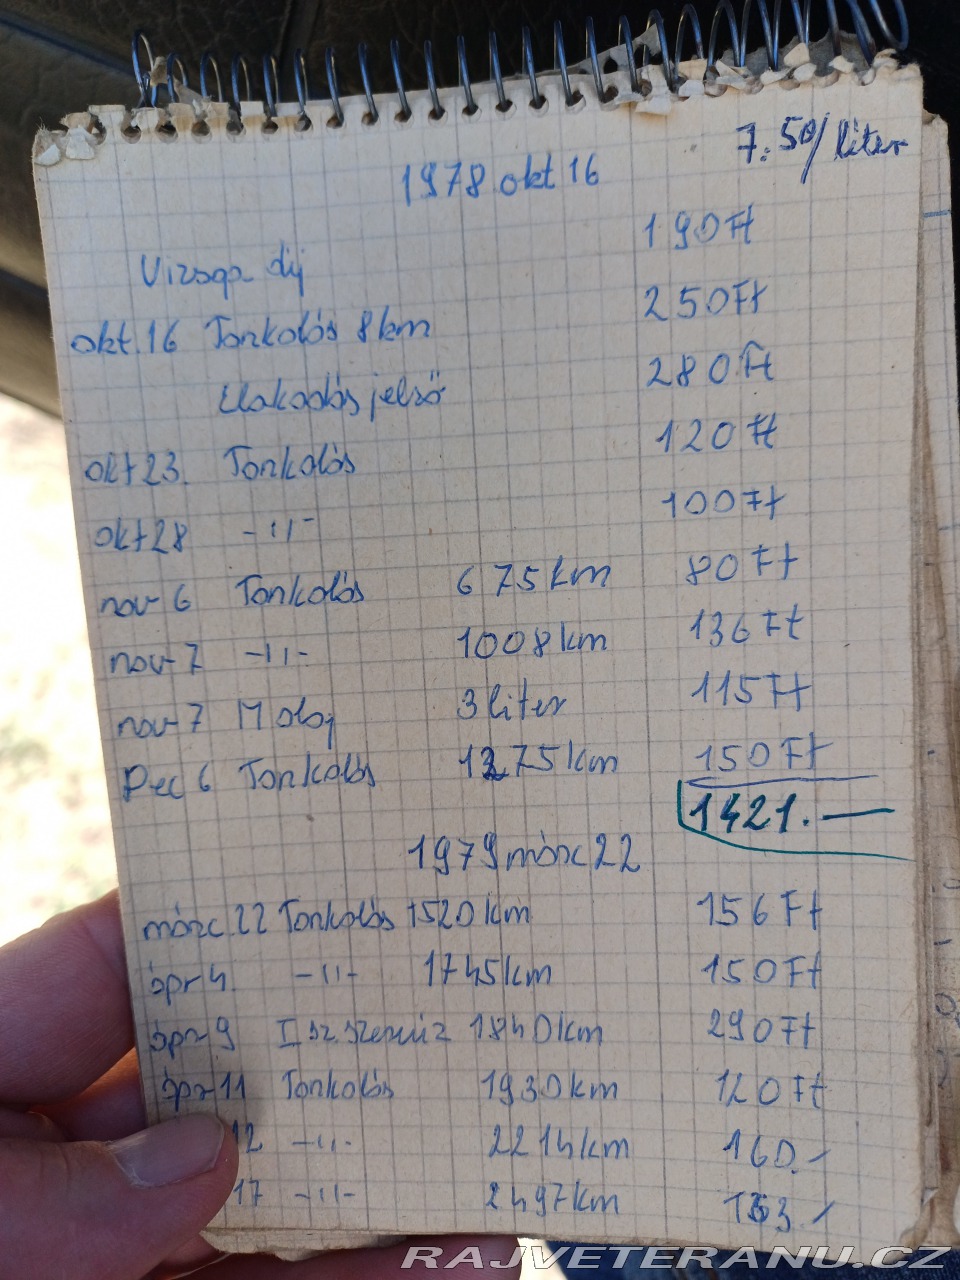 7.50/liter
1978 okt 16
Vizsga díj 190Ft
okt.16 Tankolás 8km 250Ft
Elakadás jelső 280Ft
okt 23. Tankolás 120Ft
okt 28 -"- 100Ft
nov 6 Tankolás 675km 80Ft
nov 7 -"- 1008km 136Ft
nov 7 M olaj 3liter 115Ft
Dec 6 Tankolás 1275km 150Ft
1421.—
1979 márc 22
márc.22 Tankolás 1520km 156Ft
ápr 4 -"- 1745km 150Ft
ápr 9 I sz szerviz 1840km 290Ft
ápr 11 Tankolás 1930km 120Ft
12 -"- 2214km 160.-
17 -"- 2497km
RAJVETERANU.CZ